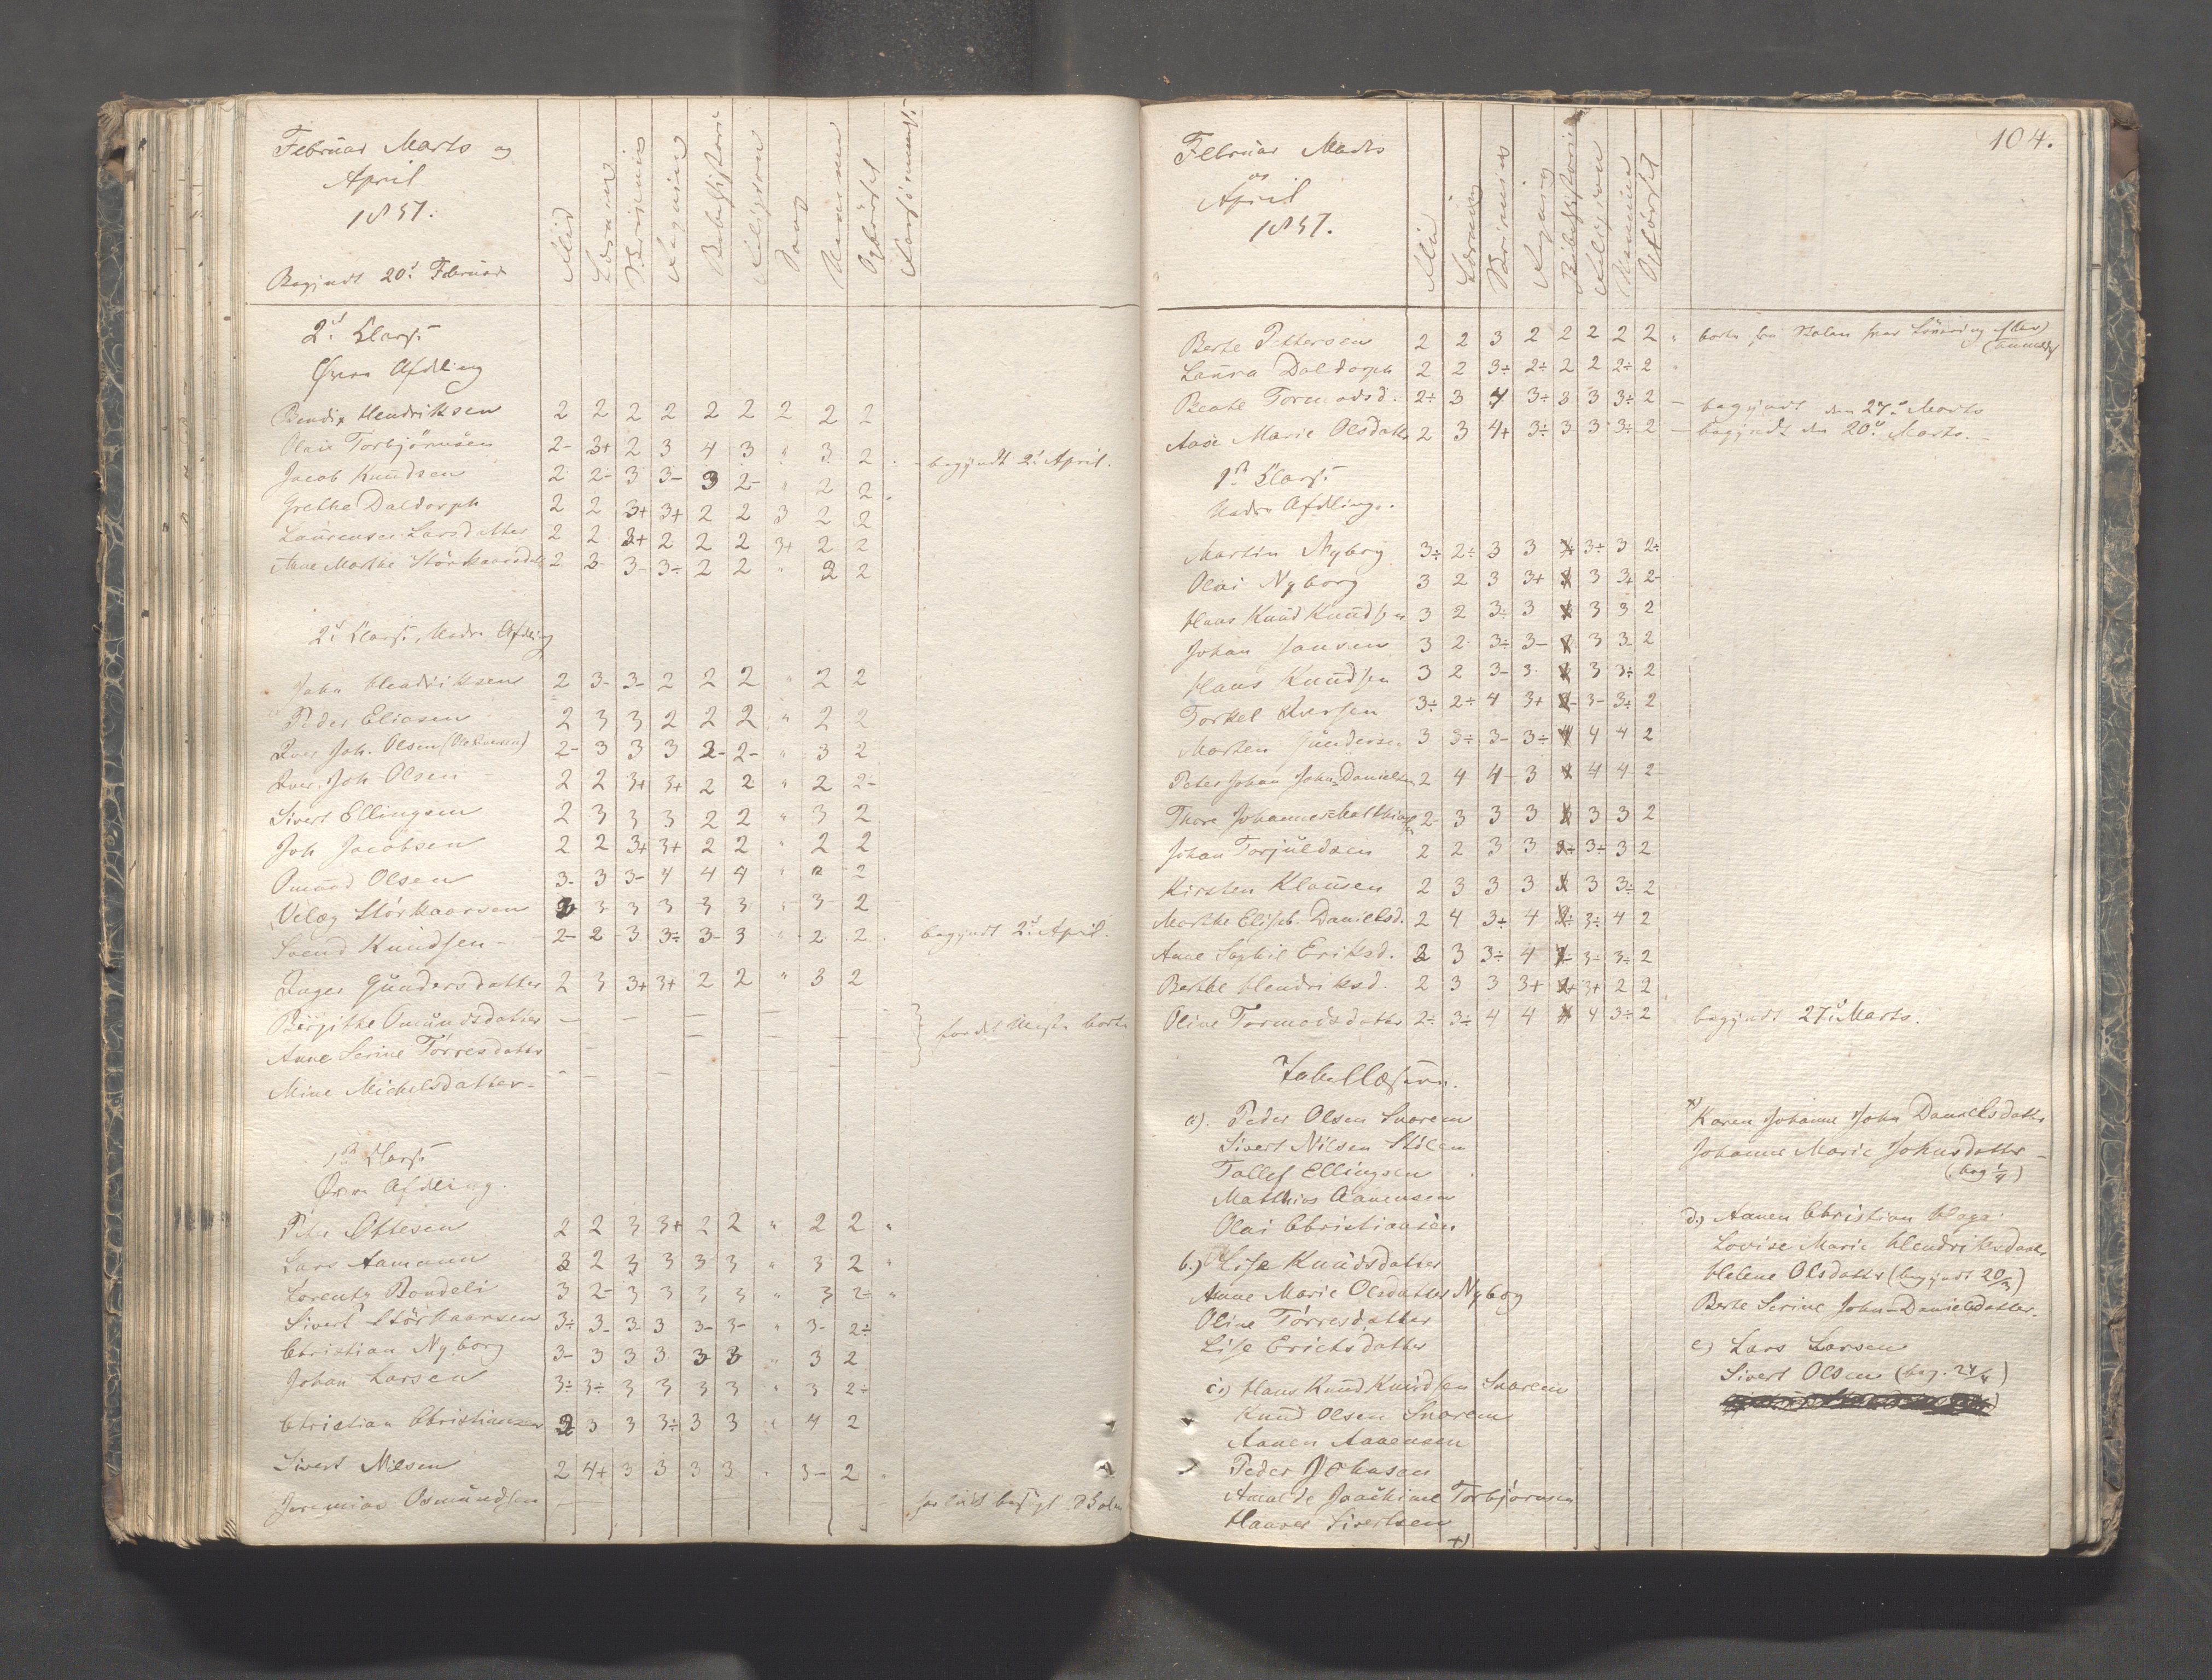 Februar Marts og
April
1857.
Begyndt 20d Februar
Flid
Læsning
Skrivning
Regning
Bibelhistorie
Religion
Sang
Opførsel
Forsømmels.
2d Klasse
Øvre Afdeling
Bendix Hendriksen 2 2 2 2 2 2 2 2 2
Olai Torbjørnsen 2- 3+ 2 3 4 3 " 3 2 - begyndt 2d April.
Jacob Knudsen 2 2- 3 3- 3 2- " 2 2
Grethe Daldorph 2 2 3+ 3+ 2 2 3 2 2
Laurense Larsdatter 2 2 2+ 2 2 2 3+ 2 2
Anne Marthe Störkaarsdatter 2 3- 3- 3÷ 2 2 " 2 2
2d Klasse, Nedre Afdeling
John Hendriksen 2 3- 3- 2 2 2 " 2 2
Peder Eliasen 2 3 3 2 2 2 " 2 2
Iver Joh. Olsen 2- 3 3 3 2- 2- " 3 2
Iver Joh Olsen 2 2 3+ 3+ 2 2 " 2 2-
Sivert Ellingsen 2 3 3 3 2 2 " 3 2
Joh Jacobsen 2 2 3+ 3+ 2 2 " 2 2
Omund Olsen 3- 3 3- 4 4 4 " 2 2
Velæg Störkaarsen 2 3 3 3 3 3 " 3 2
Svend Knudsen 2- 2 3 3÷ 3- 3 " 2 2 begyndt 2d April.
Inger Gundersdatter 2 3 3+ 3+ 2 2 " 3 2
Birgithe Omundsdatter
for det Meste borte
Anne Serine Törresdatter
Mine Michelsdatter
1ste Klasse
Øvre Afdeling.
Peter Ottesen 2 2 3 3+ 2 2 " 2 2 "
Lars Aamann 3 2 3 3 3 3 " 3 2 "
Lorentz Rondeli 3 2- 3 3 3 3 " 3 2÷ "
Sivert Störkaarsen 3÷ 3- 3- 3 3- 3- " 3- 2÷
Christian Nyborg 3- 3 3 3 3 3 " 3 2
Johan Larsen 3÷ 3÷ 3 3 3 3 " 3 2÷
Christian Christiansen 2 3 3 3÷ 3 3 " 4 2
Sivert Nilsen 2 4+ 3 3 3 3 " 3- 2
Jeremias Osmundsen
104.
Februar Marts
og
April
1857.
Flid
Læsning
Skrivning
Regning
Bibelhistorie
Religion
Opførsel
Berte Pettersen 2 2 3 2 2 2 2 2
Laura Daldorph 2 2 3÷ 2÷ 2 2 2÷ 2
Beate Tormodsd. 2÷ 3 4 3÷ 3 3 3÷ 2 - begyndt den 27d Marts
Aase Marie Olsdatter 2 3 4+ 3÷ 3 3 3÷ 2 - begyndt den 20d Marts.
1ste Klasse
Nedre Afdeling.
Martin Nyborg 3÷ 2÷ 3 3 3÷ 3 2÷
Olai Nyborg 3 2 3 3+ 3 3+ 2-
Hans Knud Knudsen 3 2 3÷ 3 3 3 2
Johan Jansen 3 2 3÷ 3- 3 3 2
Hans Knudsen 3 2 3- 3- 3 3÷ 2
Torkel Iversen 3÷ 2÷ 4 3+ 3- 3÷ 2
Morten Gundersen 3 3÷ 3- 3÷ 4 4 2
Peter Johan John-Danielsen 2 4 4- 3 4 4 2
Thore Johannes Matthias 2- 3 3 3 3 3 2
Johan Torjuldsen 2 2 3 3 3÷ 3 2
Kirsten Klausen 2 3 3 3 3 3÷ 2
Marthe Elisab. Danielsd. 2 4 3÷ 4 3÷ 4 2
Anne Sophie Eriksd. 2 3 3÷ 4 3- 3÷ 2
Berthe Hendriksd. 2 3 3 3+ 3+ 2 2
Oline Tormodsdatter 2÷ 3÷ 4 4 4 3÷ 2 begyndt 27d Marts.
Tabellæserne.
a). Peder Olsen Snorem
Sivert Nilsen Stölen
Tollef Ellingsen
Matthias Aanensen
Olai Christiansen
b.) Lise Knudsdatter
Anne Marie Olsdatter Nyborg
Oline Törresdatter
Lise Erichsdatter
c) Hans Knud Knudsen Snorem
Knud Olsen Snorem
Aanen Aanensen
Peder Johnsen
Amalde Joachime Torbjörnsen
Hanver Sivertsen
+)
+) Karen Johanne John Danielsdatter
Johanne Marie Johnsdatter
(beg 1/4)
d.) Aanen Christian Haga
Lovise Marie Hendriksdatter
Helene Olsdatter (begyndt 20/3)
Berte Serine John-Danielsdatter
e) Lars Larsen
Sivert Olsen (beg. 24/4)